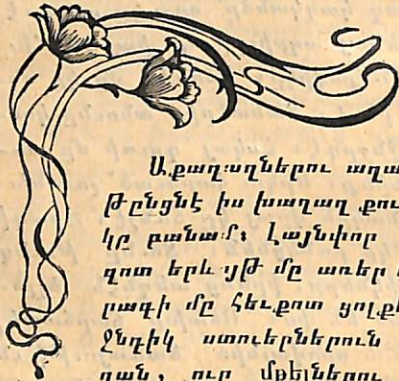 Աքաղաղներու աղա
թընցնէ իս խաղաղ քու
կը բանամ։ Լայնփոր
զոտ երև յթ մը առեր
րագի մը հետքոտ յոլքե
Չնդիկ ստուերներուն
ղան, ուր մթելներու